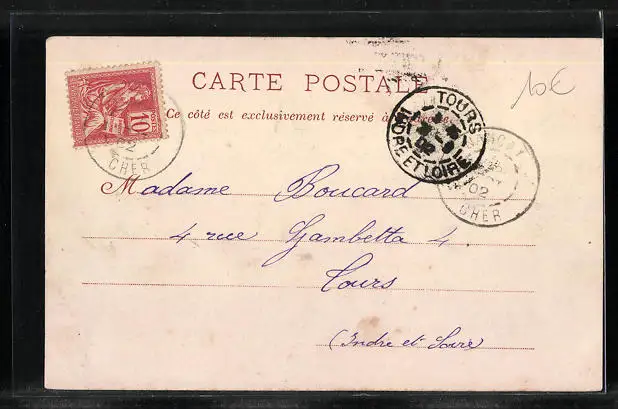 10€
CARTE POSTALE
Ce côté est exclusivement réservé à
10
02
CHER
TOURS
INDRE ET LOIRE
02
CHER
Madame Boucard
4 rue Gambetta 4
Tours
(Indre et Loire)